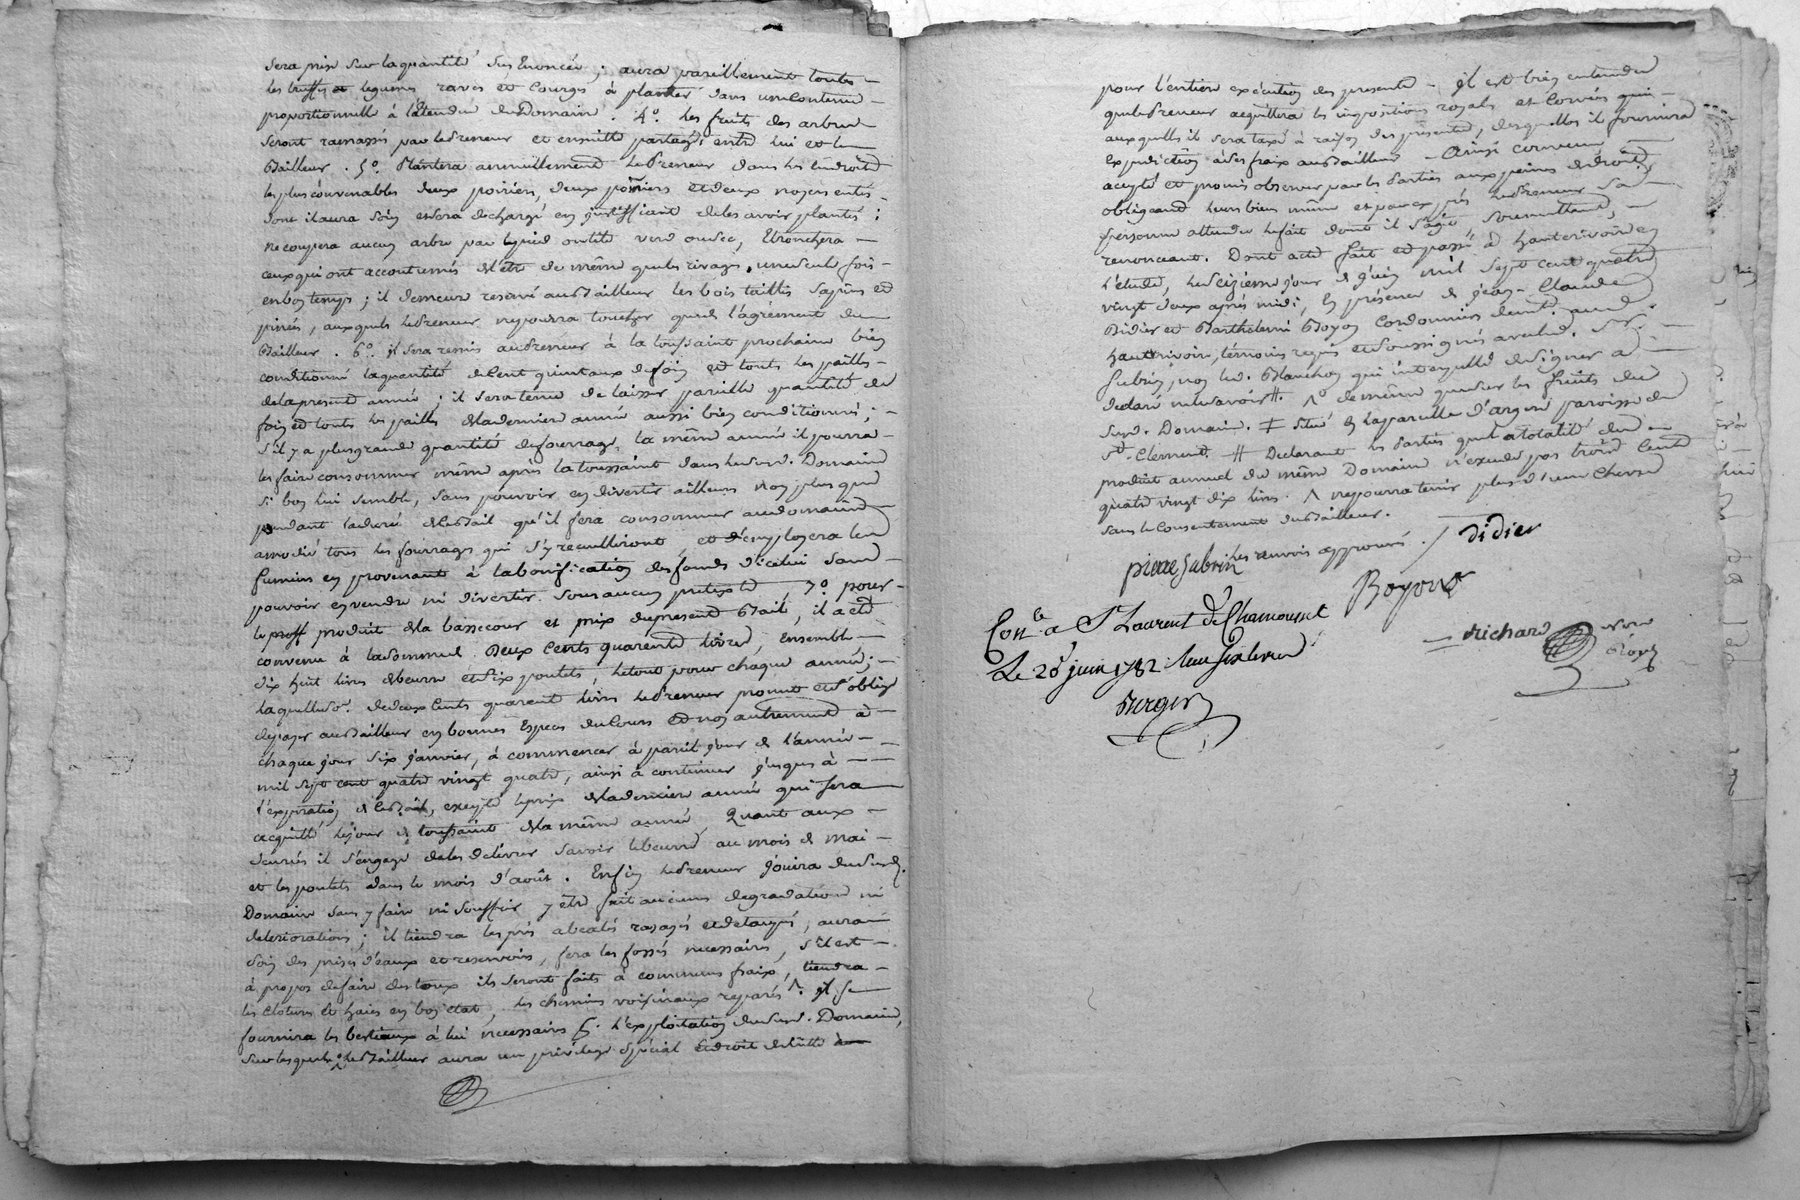 sera prise sur la quantité sus Enoncée ; aura pareillement toutes
les truffes et legumes raves et Courges à planter dans une Contenue
proportionnelle à l'étendue du Domaine . 4°. les fruits des arbres
seront ramassés par le Preneur et ensuitte partagés entre lui et le
Bailleur . 5°. Plantera annuellement le Preneur dans les Endroits
les plus convenables deux poiriers, deux pomiers et deux noyers entés
dont il aura soin et sera dechargé en justiffiant de les avoir plantés ;
ne coupera aucun arbre par le pied ou tête verd ou sec, Etronchera
ceux qui ont accoutumés de l'être de même que les rivages, une seule fois
en bon temps ; il demeure reservé au Bailleur les bois taillis sapins et
pinées, auxquels le Preneur ne pourra toucher que de l'agrement du
Bailleur . 6°. il sera remis au Preneur à la toussaint prochaine bien
conditionné la quantité de Cent quintaux de foin et toutes les pailles
de la presente année ; il sera tenu de laisser pareille quantité de
foin et toutes les pailles de la derniere année aussi bien conditionnés ;
s'il y a plus grande quantité de fourrage, la même année il pourra
les faire consommer même après la toussaint dans le susd. Domaine
si bon lui semble, sans pouvoir en divertir ailleurs non plus que
pendant la durée du Bail qu'il fera consommer au domaine
amodié tous les fourrages qui s'y recuilliront, et d'employer les
fumiers en provenants à la bonification des fonds d'icelui sans
pouvoir en vendre ni divertir sous aucun pretexte , 7°. pour
le proff produit de la bassecour et prix du present Bail, il a eté
convenu à la somme de Deux Cents quarente livres, Ensemble
dix huit livres de beurre et six poulets, le tout pour chaque année ;
laquelle so.e de deux Cents quarente livres le Preneur promet et s'oblige
de payer au Bailleur en bonnes Especes du Cours et non autrement à
chaque jour six janvier, à commencer à pareil jour de l'année
mil sept cent quatre vingt quatre, ainsi à continuer jusques à
l'expiration de ce Bail, excepté le prix de la derniere année qui sera
acquitté le jour de toussaint de la même année Quant aux
denrées il s'engage de les délivrer savoir le beurre au mois de mai
et les poulets dans le mois d'août . Enfin le Preneur jouira du susd.
Domaine sans y faire ni souffrir y être fait aucunes degradations ni
deteriorations ; il tiendra les prés abealés rasés et detaupés, aura
soin des prises d'eaux et reservoirs, fera les fossés necessaires, s'il est
à propos de faire des toux ils seront faits à communs fraix, tiendra
les Clotures et haies en bon état, les chemins voisinaux reparés ^. il se
fournira les bestiaux à lui necessaires p. l'exploitation du susd. Domaine,
sur lesquels le Bailleur aura un privilege special et droit de suitte
pour l'entiere execution des presentes . il est bien entendu
que le Preneur acquittera les impositions royales et Corvées
auxquelles il sera taxé à raison des presentes, desquelles il fournira
Expedition à ses fraix au Bailleur . Ainsi convenu
accepté et promis observer par les Parties aux peines de droit,
obligeant leurs biens même et par exprès le Preneur sa
personne attendu le fait dont il s'agit soumettant,
renonceant. Dont acte fait et passé à hauterivoire en
l'étude, le seizieme jour de juin mil sept cent quatre
vingt deux après midi, En présence de jean-Claude
Didier et Barthelemi Boyon Cordonniers demt. aud.
hauterivoire, témoins requis et soussignés avec led. Sr.
Subrin, non led. Blanchon qui interpellé de signer a
declaré ne le savoir #. ^ de même que sur les fruits du
susd. Domaine. ‡ situé En la parcelle d'argere paroisse de
St. Clement. # Declarant les Parties que la totalité du
produit annuel du même Domaine n'excede pas trois Cents
quatre vingt dix livres. ^ ne pourra tenir plus d'une chevre
sans le consentement du Bailleur .
les renvois approuvés . / Didier
pierre Subrin
Boyon
Con.lé a St Laurent de Chamousset
Le 26 juin 1782
Richard Nore
Royal